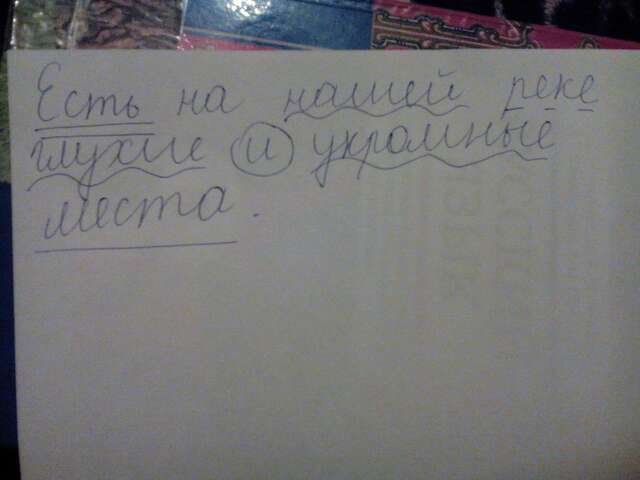 Есть на нашей реке
глухие и укромные
места.